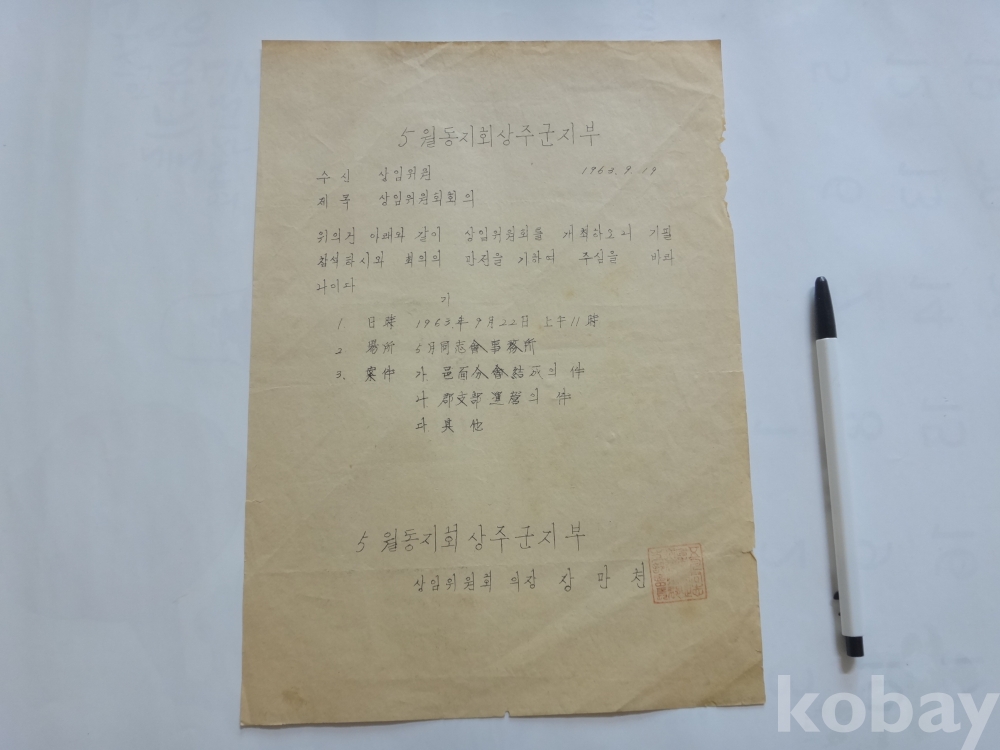 5월동지회상주군지부
수신 상임위원 1963. 9. 19
제목 상임위원회회의
위의건 아래와 같이 상임위원회를 개최하오니 기필
참석하시와 회의의 만전을 기하여 주심을 바라
나이다
기
1. 日時 1963年 9月 22日 上午 11時
2 場所 5月同志會事務所
3. 案件 가 邑面分會結成의 件
나 郡支部 運營의 件
다 其他
5월동지회상주군지부
상임위원회 의장 장만천
kobay